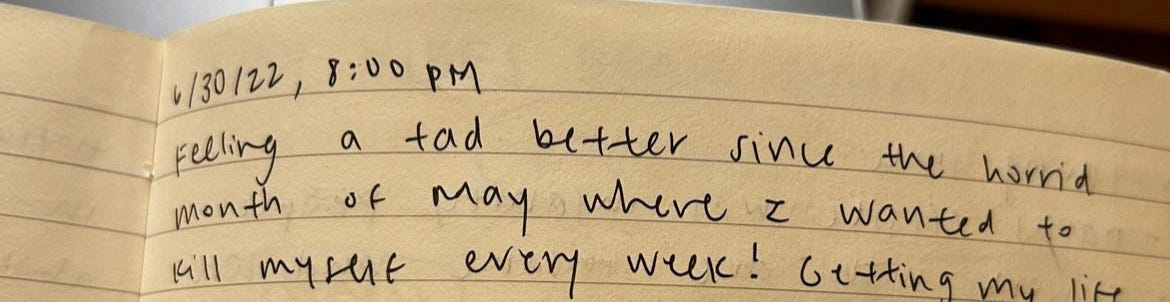 6/30/22, 8:00 PM
Feeling a tad better since the horrid
month of May where I wanted to
kill myself every week! Getting my life